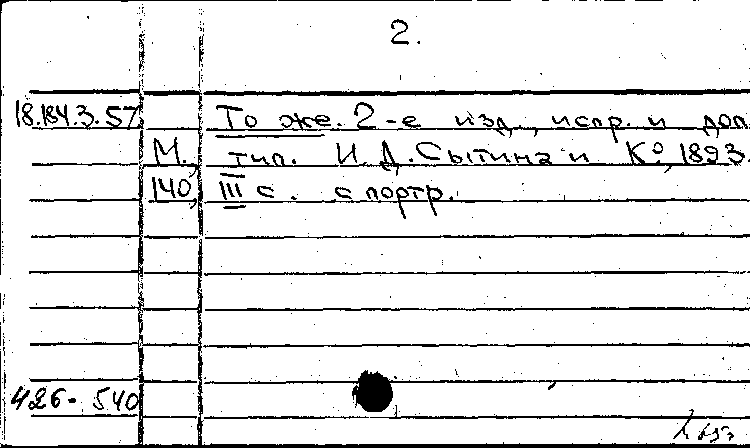 2.
18.184.3.57 То же. 2-е изд., испр. и доп
М., тип. И. Д. Сытина и К⁰, 1893.
140, III с. с портр.
426-540